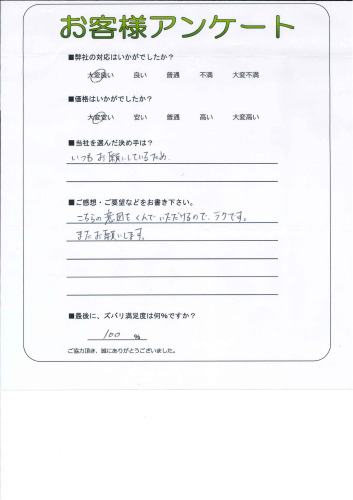 お客様アンケート
■弊社の対応はいかがでしたか？
大変良い 良い 普通 不満 大変不満
■価格はいかがでしたか？
大変安い 安い 普通 高い 大変高い
■当社を選んだ決め手は？
いつもお願いしているため
■ご感想・ご要望などをお書き下さい。
こちらの意図をくんでいただけるので、ラクです。
またお願いします。
■最後に、ズバリ満足度は何％ですか？
100 ％
ご協力頂き、誠にありがとうございました。